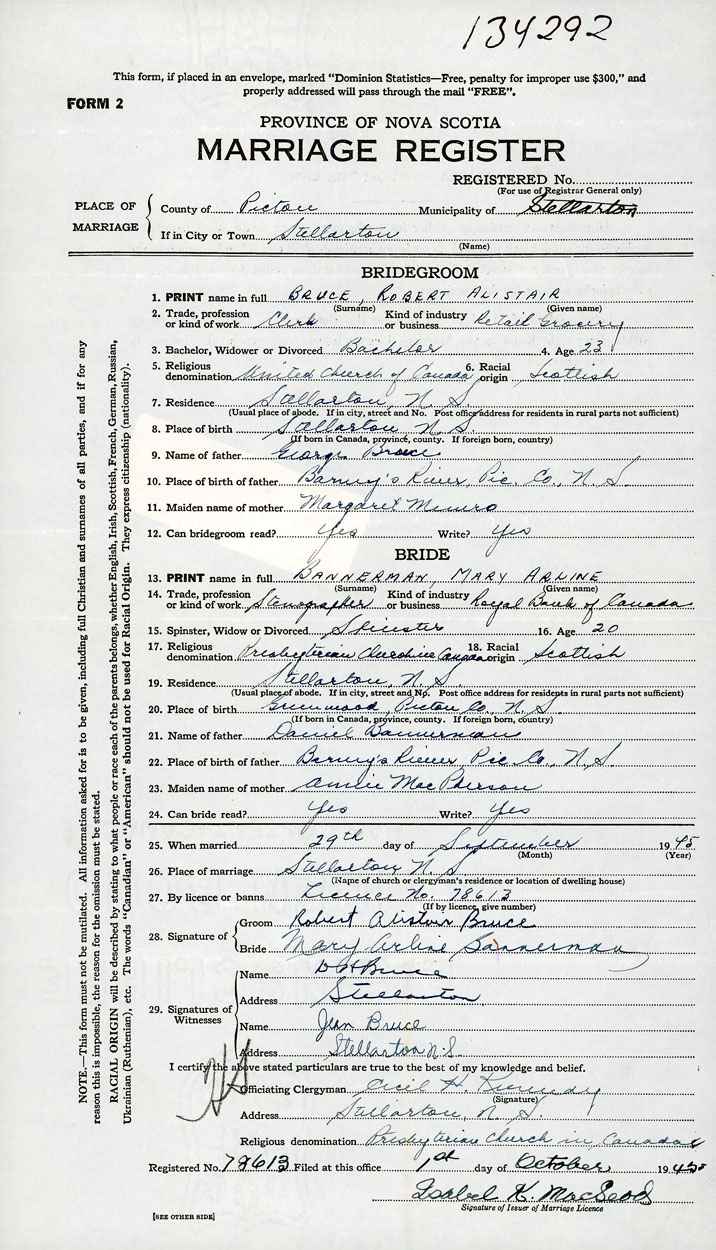 134292
This form, if placed in an envelope, marked "Dominion Statistics—Free, penalty for improper use $300," and
properly addressed will pass through the mail "FREE".
FORM 2
PROVINCE OF NOVA SCOTIA
MARRIAGE REGISTER
REGISTERED No.
(For use of Registrar General only)
PLACE OF MARRIAGE
County of Pictou Municipality of Stellarton
If in City or Town Stellarton
(Name)
BRIDEGROOM
1. PRINT name in full BRUCE, ROBERT ALISTAIR
(Surname) (Given name)
2. Trade, profession or kind of work Clerk Kind of industry or business Retail Grocery
3. Bachelor, Widower or Divorced Bachelor 4. Age 23
5. Religious denomination United Church of Canada 6. Racial origin Scottish
7. Residence Stellarton, N. S.
(Usual place of abode. If in city, street and No. Post office address for residents in rural parts not sufficient)
8. Place of birth Stellarton N. S.
(If born in Canada, province, county. If foreign born, country)
9. Name of father George Bruce
10. Place of birth of father Barney's River, Pic. Co., N. S.
11. Maiden name of mother Margaret Munro
12. Can bridegroom read? Yes Write? Yes
BRIDE
13. PRINT name in full BANNERMAN, MARY ARLINE
(Surname) (Given name)
14. Trade, profession or kind of work Stenographer Kind of industry or business Royal Bank of Canada
15. Spinster, Widow or Divorced Spinster 16. Age 20
17. Religious denomination Presbyterian Church in Canada 18. Racial origin Scottish
19. Residence Stellarton, N. S.
(Usual place of abode. If in city, street and No. Post office address for residents in rural parts not sufficient)
20. Place of birth Greenwood, Pictou Co., N. S.
(If born in Canada, province, county. If foreign born, country)
21. Name of father Daniel Bannerman
22. Place of birth of father Barney's River, Pic. Co., N. S.
23. Maiden name of mother Annie MacPherson
24. Can bride read? Yes Write? Yes
25. When married 29th day of September 1945
(Month) (Year)
26. Place of marriage Stellarton N. S.
(Name of church or clergyman's residence or location of dwelling house)
27. By licence or banns Licence No. 78613
(If by licence, give number)
28. Signature of
Groom Robert Alistair Bruce
Bride Mary Arline Bannerman
29. Signatures of Witnesses
Name Bruce
Address Stellarton
Name Jean Bruce
Address Stellarton N.S.
I certify the above stated particulars are true to the best of my knowledge and belief.
Officiating Clergyman Cecil H. Kennedy
(Signature)
Address Stellarton, N. S.
Religious denomination Presbyterian Church in Canada
Registered No. 78613 Filed at this office 1st day of October 1945
Isabel K. MacLeod
Signature of Issuer of Marriage Licence
[SEE OTHER SIDE]
NOTE.—This form must not be mutilated. All information asked for is to be given, including full Christian and surnames of all parties, and if for any
reason this is impossible, the reason for the omission must be stated.
RACIAL ORIGIN will be described by stating to what people or race each of the parents belongs, whether English, Irish, Scottish, French, German, Russian,
Ukrainian (Ruthenian), etc. The words "Canadian" or "American" should not be used for Racial Origin. They express citizenship (nationality).